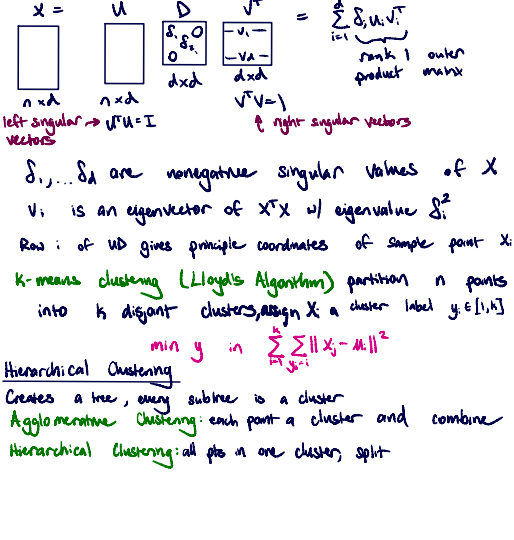 X = U D Vᵀ = Σᵢ₌₁ᵈ δᵢ uᵢ vᵢᵀ
δ₁ 0 δ₂ 0
- v₁ -
- vd -
rank 1 outer product matrix
n×d n×d d×d d×d
left singular vectors → UᵀU = I
VᵀV = 1
↑ right singular vectors
δ₁,...δd are nonegative singular values of X
vᵢ is an eigenvector of XᵀX w/ eigenvalue δᵢ²
Row i of UD gives principle coordinates of sample point Xᵢ
K-means clustering (Lloyd's Algorithm) partition n points
into k disjoint clusters, assign Xᵢ a cluster label yᵢ ∈ [1,k]
min y in Σᵢ₌₁ᵏ Σ_yⱼ₌ᵢ || xⱼ - uᵢ ||²
Hierarchical Clustering
Creates a tree, every subtree is a cluster
Agglomerative Clustering: each point a cluster and combine
Hierarchical Clustering: all pts in one cluster, split